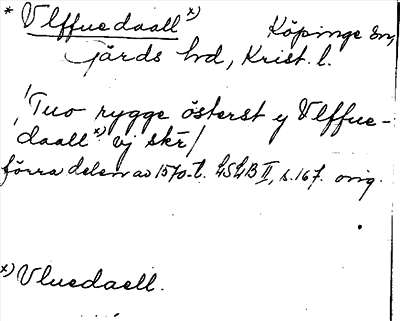 * Vlffuedaall x) Köpinge sn,
Gärds hd, Krist. l.
/Tuo rygge österst y Vlffue-
daall x) vj skr/
förra delen av 1570-t. LSLB II, s. 167. orig.
x) Vluedaell.